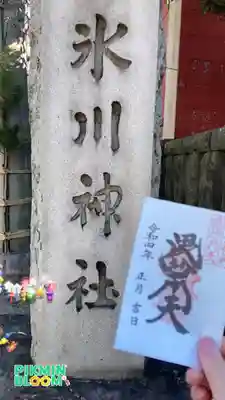 氷川神社
令和四年
正月吉日
PIKMIN
BLOOM